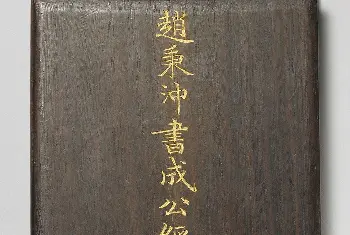 趙秉沖書成公